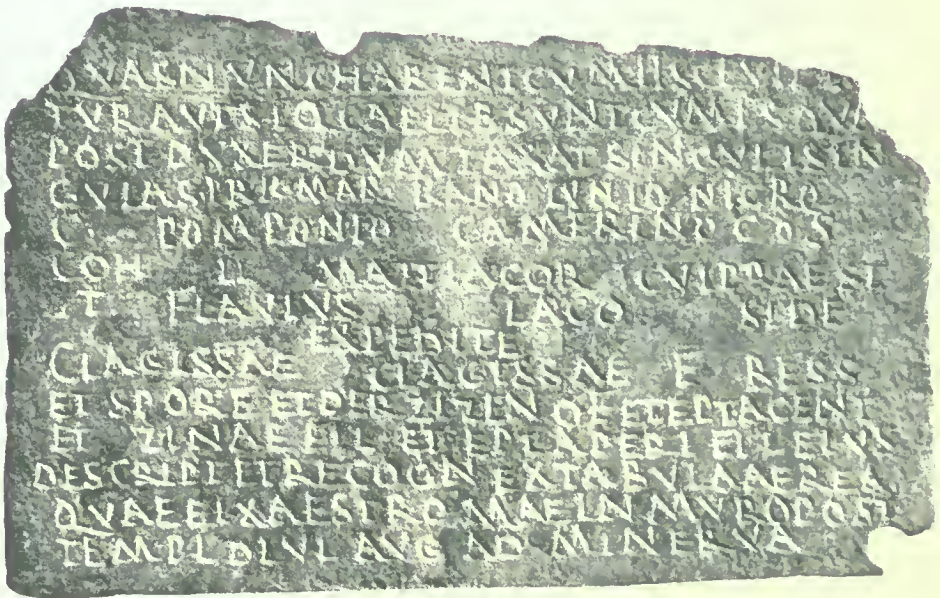 QVAS NVNC HABENT CVM IIS CIVIT
IVRA VT SI QI CAELIBE SVNT CVM IS QVI
POST DVXER DVMTAXAT SINGVLI SIN
GVLAS PR K MAR IVNIO NIGRO
C POMPONIO CAMERINO COS
COH II MATTIACOR CVI PRAEST
T FLAVIVS LACO SEDE
EXPEDITE
CLAGISSAE CLAGISSAE F BESS
ET SPORE ET DERZIZEN QE ET EPTACENT
ET ZINAE FIL ET EPTAPERI FIL EIVS
DESCRIPT ET RECOGN EX TABVLA AEREA
QVAE FIXA EST ROMAE IN MVRO POST
TEMPL DIVI AVG AD MINERVA